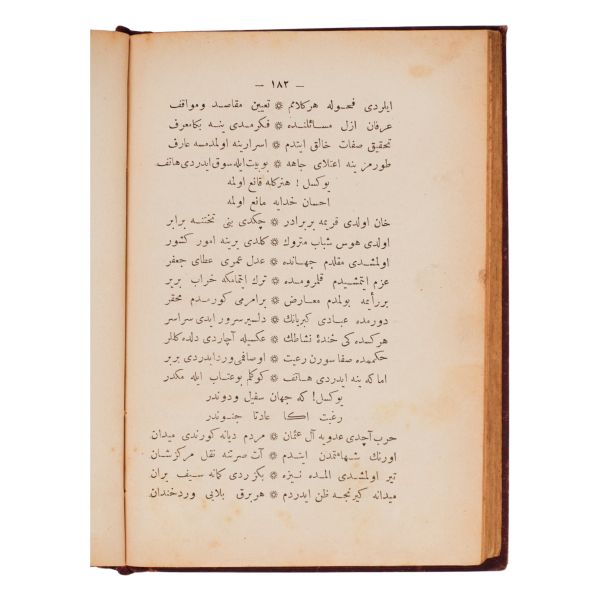 — ١٨٢ —
ايلردى فحوله هركلامم ❊ تعيين مقاصد ومواقف
عرفان ازل مسائلنده ❊ فكرمدى ينه بكا معرف
تحقيق صفات خالق ايتدم ❊ اسرارينه اولمدمسه عارف
طورمز ينه اعتلاى جاهه ❊ بوبيت ايله سوق ايدردى هاتف
يوكسل ! هنركله قانع اولمه
احسان خدايه مانع اولمه
خان اولدى قريمه بر برادر ❊ چكدى بنى تختنه برابر
اولدى هوس شباب متروك ❊ كلدى يرينه امور كشور
اولمشدى مقلدم جهانده ❊ عدل عمرى عطاى جعفر
عزم ايتمشيدم قلمرومده ❊ ترك ايتمامكه خراب بر ير
بررأيمه بولمدم معارض ❊ برامرمى كورمدم محقر
دورمده عبادى كبريانك ❊ دلسير سرور ايدى سراسر
هركسده كى خندهٔ نشاطك ❊ عكسيله آچاردى دلده كللر
حكممده صفا سورن رعيت ❊ اوصافمى ورد ايدردى بربر
اماكه ينه ايدردى هاتف ❊ كوكلم بوعتاب ايله مكدر
يوكسل! كه جهان سفيل ودوندر
رغبت اكا عادتا جنوندر
حرب آچدى عدويه آل عثمان ❊ مردم ديانه كورندى ميدان
اورنك شهامتمدن ايتدم ❊ آت صرتنه نقل مركز شان
تير اولمشدى المده نيزه ❊ بكزردى كمانه سيف بران
ميدانه كيرنجه ظن ايدردم ❊ هربرق بلايى ورد خندان